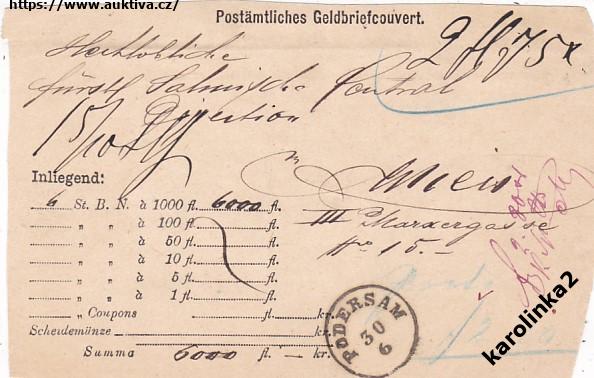 https://www.auktiva.cz/
Postämtliches Geldbriefcouvert.
Hochlöbliche
fürstl Salmische Central
Direction
in Wien
III Marxergasse
Nro 15.-
Inliegend:
6 St. B. N. à 1000 fl. 6000 fl.
„ „ à 100 fl. fl.
„ „ à 50 fl. fl.
„ „ à 10 fl. fl.
„ „ à 5 fl. fl.
„ „ à 1 fl. fl.
„ Coupons fl. kr.
Scheidemünze fl. kr.
Summa 6000 fl. — kr.
PODERSAM
30
6
karolinka2